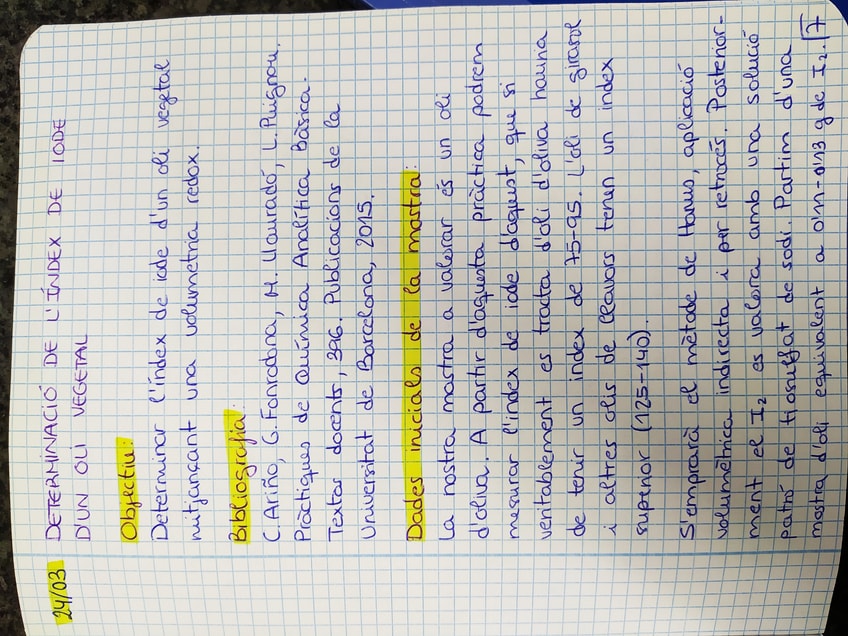 24/03 DETERMINACIÓ DE L'ÍNDEX DE IODE
D'UN OLI VEGETAL
Objectiu:
Determinar l'índex de iode d'un oli vegetal
mitjançant una volumetria redox.
Bibliografia:
C. Ariño, G. Fonrodona, M. Llauradó, L. Puignou,
Pràctiques de Química Analítica Bàsica.
Textos docents, 396. Publicacions de la
Universitat de Barcelona, 2015.
Dades inicials de la mostra:
La nostra mostra a valorar és un oli
d'oliva. A partir d'aquesta pràctica podrem
mesurar l'índex de iode d'aquest, que si
veritablement es tracta d'oli d'oliva hauria
de tenir un index de 75-95. L'oli de girasol
i altres olis de llavors tenen un índex
superior (125-140).
S'emprarà el mètode de Hanus, aplicació
volumètrica indirecta i per retrocés. Posterior-
ment el I₂ es valora amb una solució
patró de tiosulfat de sodi. Partim d'una
mostra d'oli equivalent a 0'11-0'13 g de I₂. 7